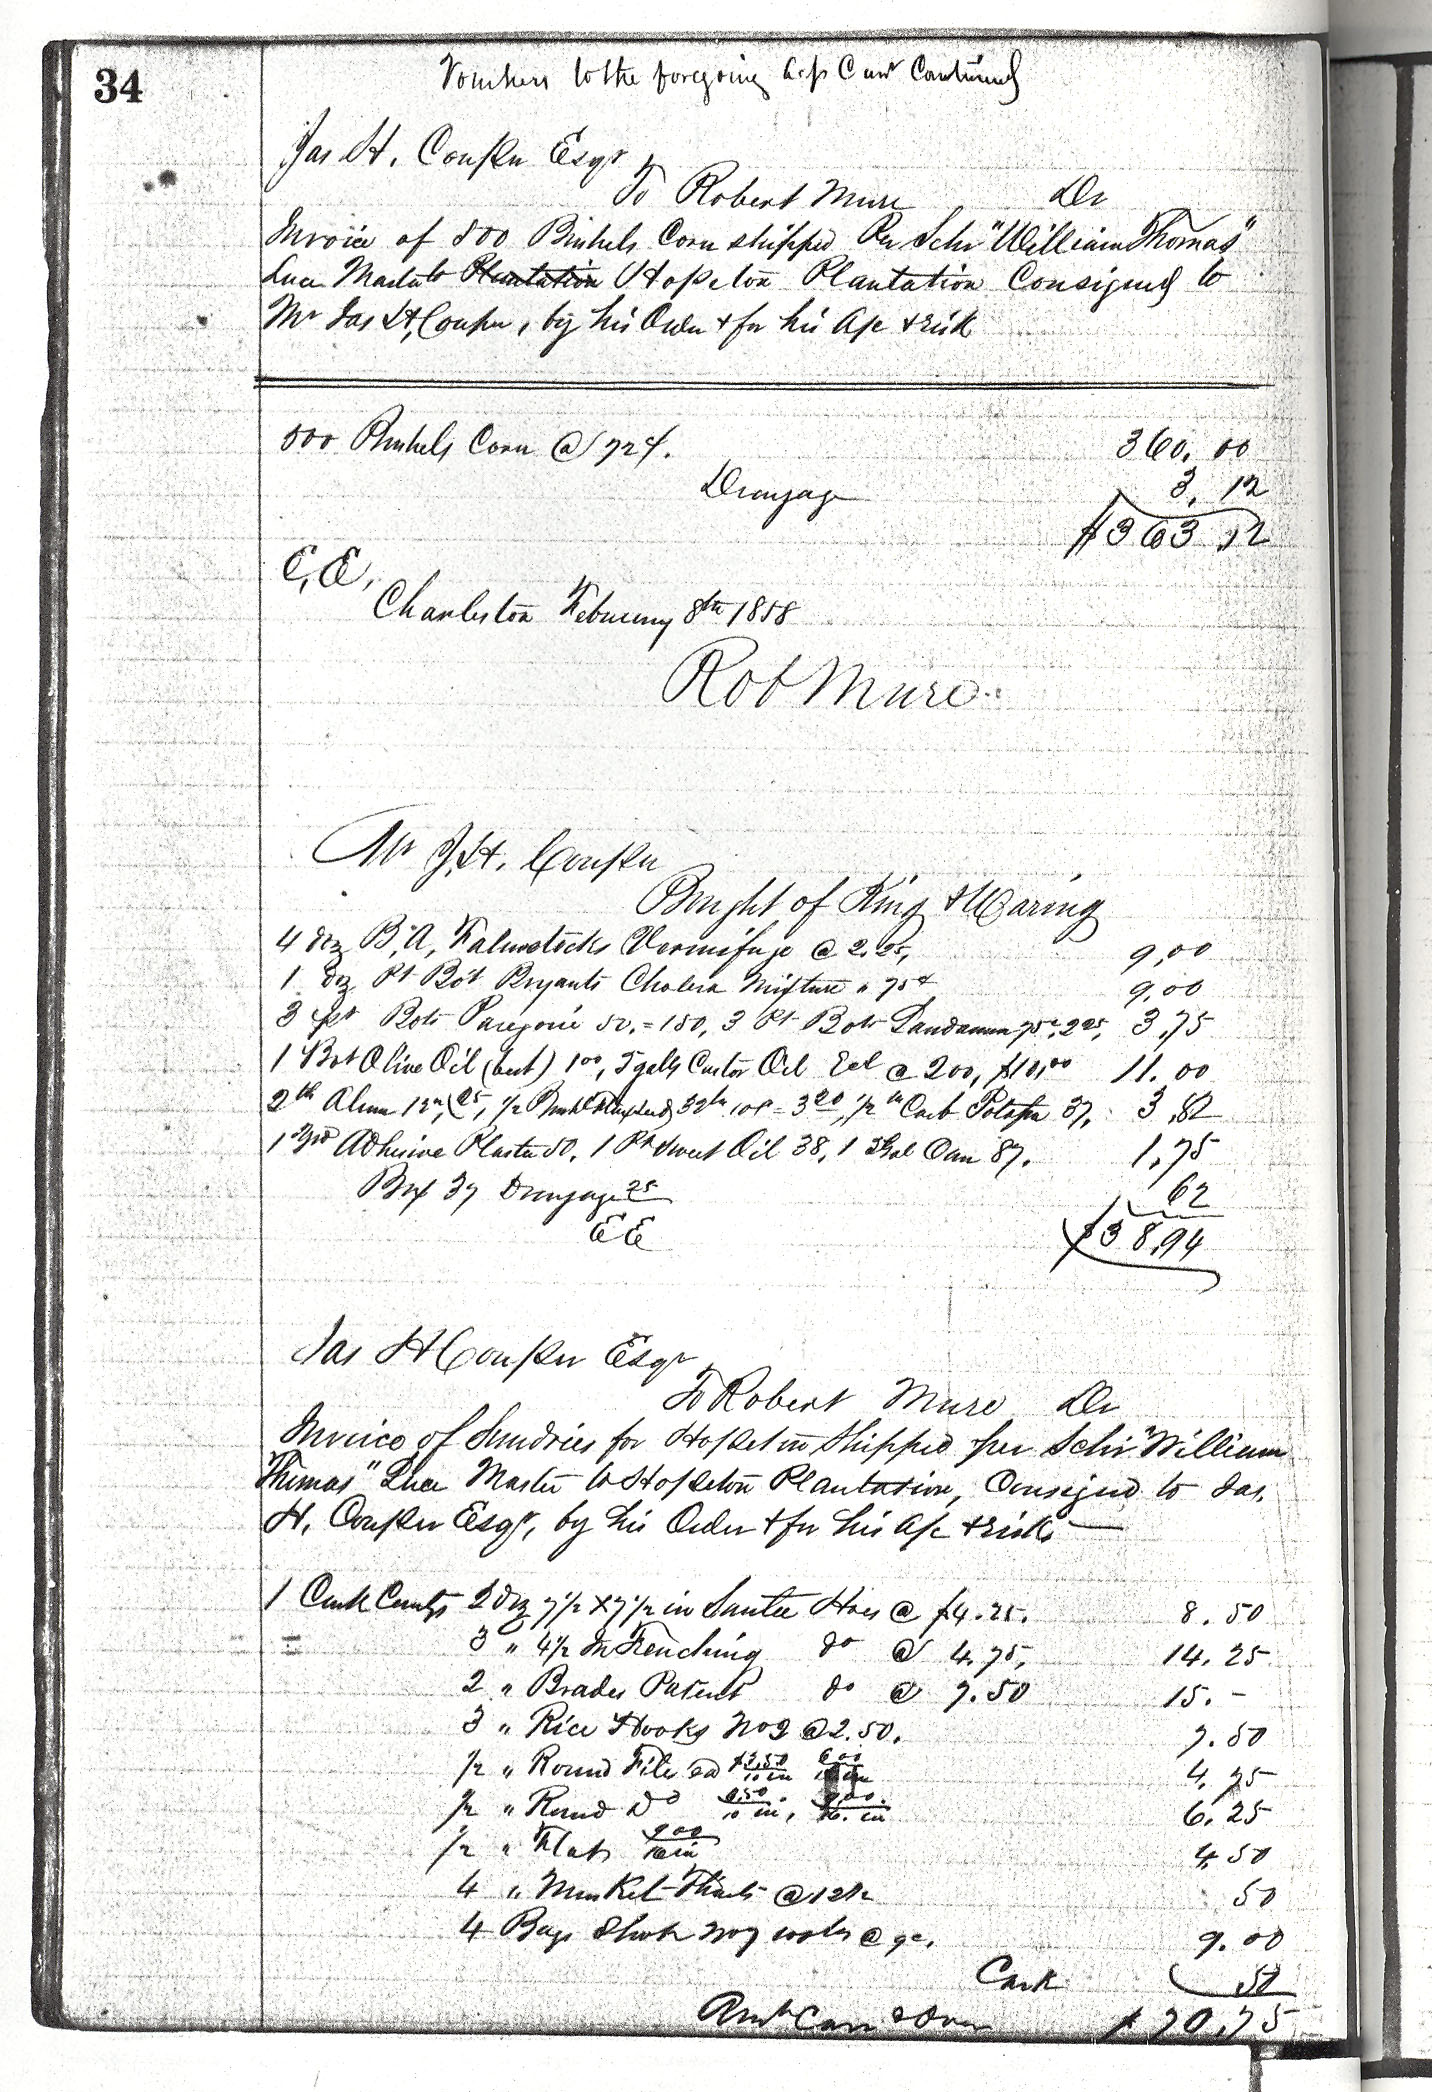 34
Vouchers to the foregoing a/c Curt Continued
Jas H. Couper Esqr
To Robert Mure Dr
Invoice of 500 Bushels Corn shipped Per Schr "William Thomas"
Luce Master to Plantation Hopeton Plantation Consigned to
Mr Jas H. Couper, by his Order & for his a/c & risk
500 Bushels Corn @ 72¢. 360.00
Drayage 3.12
$363.12
E. E.
Charleston February 8th 1858
Rob Mure
Mr J. H. Couper
Bought of King & Waring
4 doz B. A. Fahnestocks Vermifuge @ 2.25, 9,00
1 doz Pt Bot Bryants Cholera Mixture " 75¢ 9,00
3 pt Bots Paregoric 50. = 150, 3 Pt Bots Laudanum 75c, 225, 3,75
1 Bot Olive Oil (best) 1 00, 5 galls Castor Oil @ 200, $10,00 11.00
2 lb Alum 12½, 25, ½ Bushl Flaxseed 32 lb 10c = 3 20, ½ lb Carb Potash 37, 3,82
1 yd Adhesive Plaster 50, 1 Pt Sweet Oil 38, 1 Gal Can 87. 1,75
Box 37 Drayage 25 62
E E $38,94
Jas H Couper Esqr
To Robert Mure Dr
Invoice of Sundries for Hopeton Shipped per Schr "William
Thomas" Luce Master to Hopeton Plantation, Consigned to Jas.
H. Couper Esqr, by his Order & for his a/c & risk
1 Cask Contg 2 doz 7½ X 7½ in Santee Hoes @ $4.25. 8.50
3 " 4½ In Trenching do @ 4.75, 14.25
2 " Brades Patent do @ 7.50 15.-
3 " Rice Hooks No 2 @ 2.50. 7.50
½ " Round Files 3.50 10 in 6 00 4,75
½ " Do 10 in, in 6.25
½ " Flat 9 00 in 4,50
4 " Musket @ 12½ 50
4 Bags Shot @ 9.00
Cask 50
Amt Carrd Over $70.75